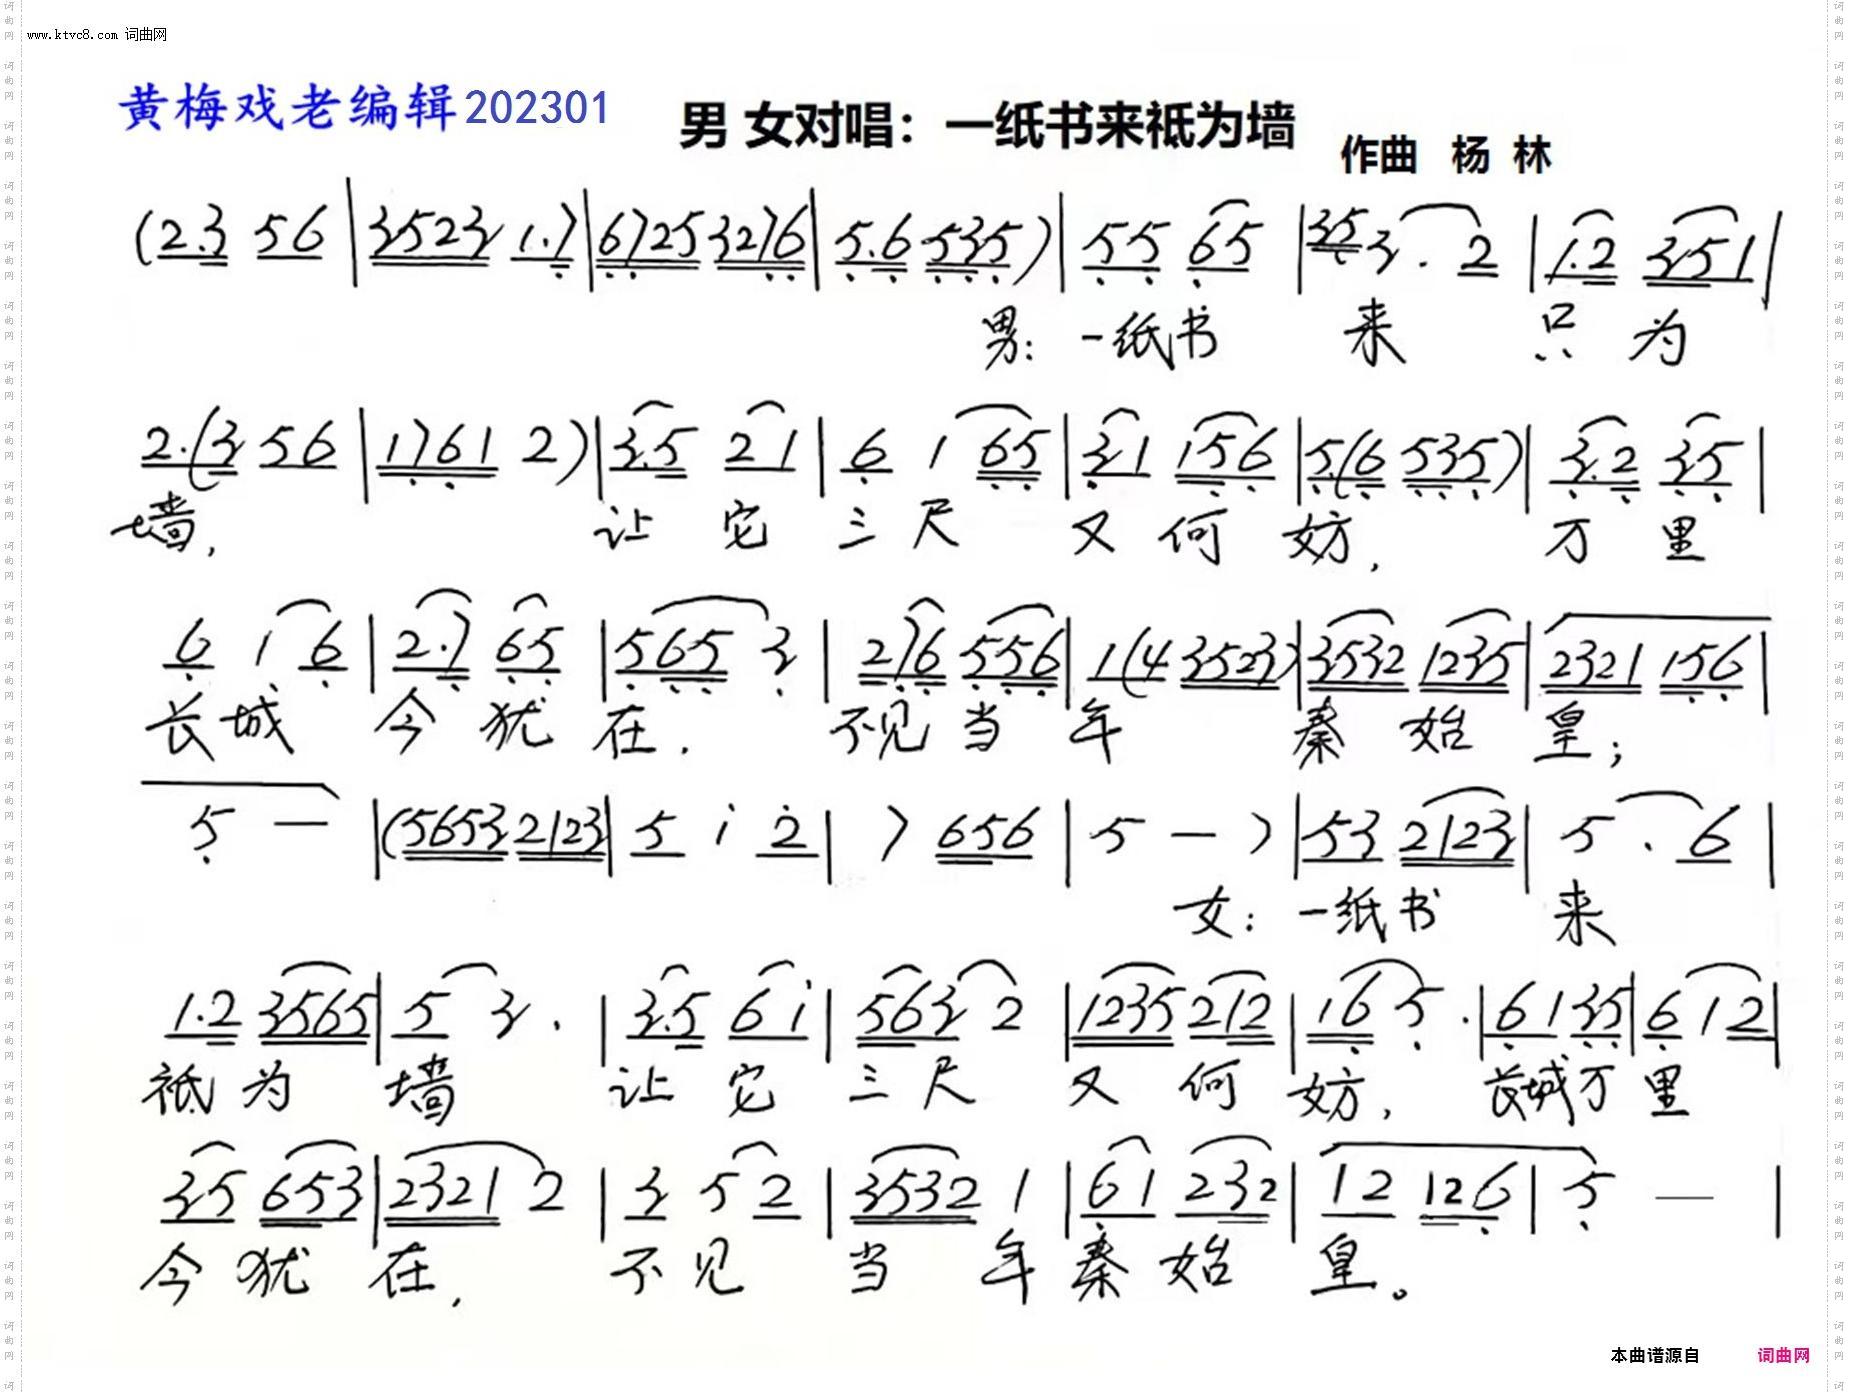 www.ktvc8.com 词曲网
黄梅戏老编辑202301
男 女对唱：一纸书来祗为墙
作曲 杨 林
(2.3 56 | 3523 1.7 | 6725 3276 | 5.6 535) | 55 65 | 353. 2 | 1.2 351 |
男：一纸书 来 只 为
2.(3 56 | 1761 2) | 3.5 21 | 6 1 65 | 31 156 | 5.(6 535) | 3.2 35 |
墙， 让 它 三 尺 又 何 妨， 万 里
6 1 6 | 2.7 65 | 565 3 | 276 556 | 1(4 3523) | 3532 1235 | 2321 156 |
长 城 今 犹 在． 不见 当 年 秦 始 皇；
5 — | (5653 2123 | 5 i 2 | 7 656 | 5 — ) | 53 2123 | 5 . 6 |
女：一纸书 来
1.2 3565 | 5 3 . | 3.5 6i | 563 2 | 1235 212 | 16 5 . | 6135 | 6 12 |
祗 为 墙 让 它 三 尺 又 何 妨， 长城万 里
35 653 | 2321 2 | 3 5 2 | 3532 1 | 61 232 | 12 126 | 5 — |
今 犹 在， 不 见 当 年 秦 始 皇。
本曲谱源自 词曲网